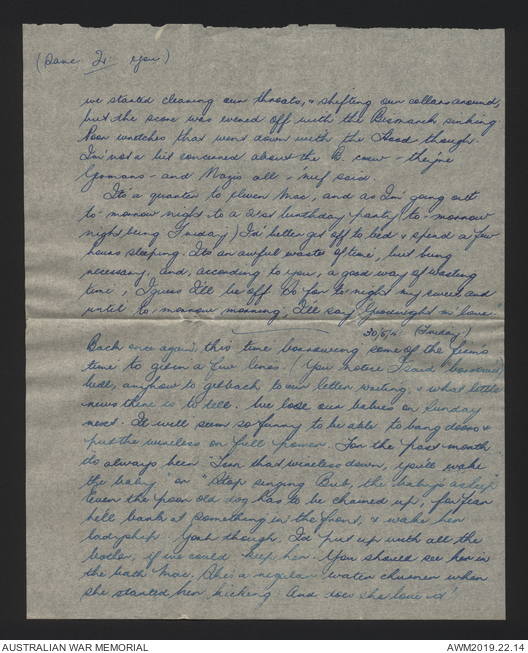 (Dance Is you)
we started clearing our throats, & shifting our collars around,
but the score was evened off with the Bismarck sinking
Poor wretches that went down with the Hood though.
I'm not a bit concerned about the B. crew - they're
Germans - and Nazis all - 'nuf said.
It's a quarter to eleven Mac, and as I'm going out
to-morrow night to a 21st birthday party (to-morrow
night being Friday) I'd better get off to bed & spend a few
hours sleeping. It's an awful waste of time, but being
necessary, and, according to you, a good way of wasting
time, I guess I'll be off. So for to-night my sweet and
until to-morrow morning, I'll say Goodnight m'love.
30/5/41 (Friday)
Back once again, this time borrowing some of the firm's
time to get in a few lines. (You notice I said borrowed)
Well, anyhow to get back to our letter writing, & what little
news there is to tell. We lose our babies on Sunday
next. It will seem so funny to be able to bang doors &
put the wireless on full power. For the past month
its always been "Turn that wireless down, you'll wake
the baby" or "Stop singing Bub, the baby's asleep"
Even the poor old dog has to be chained up, for fear
he'll bark at something in the front, & wake her
ladyship. Yeah though, I'd put up with all the
bother, if we could keep her. You should see her in
the bath Mac. She's a regular water churner when
she started her kicking. And does she love it!
AUSTRALIAN WAR MEMORIAL
AWM2019.22.14